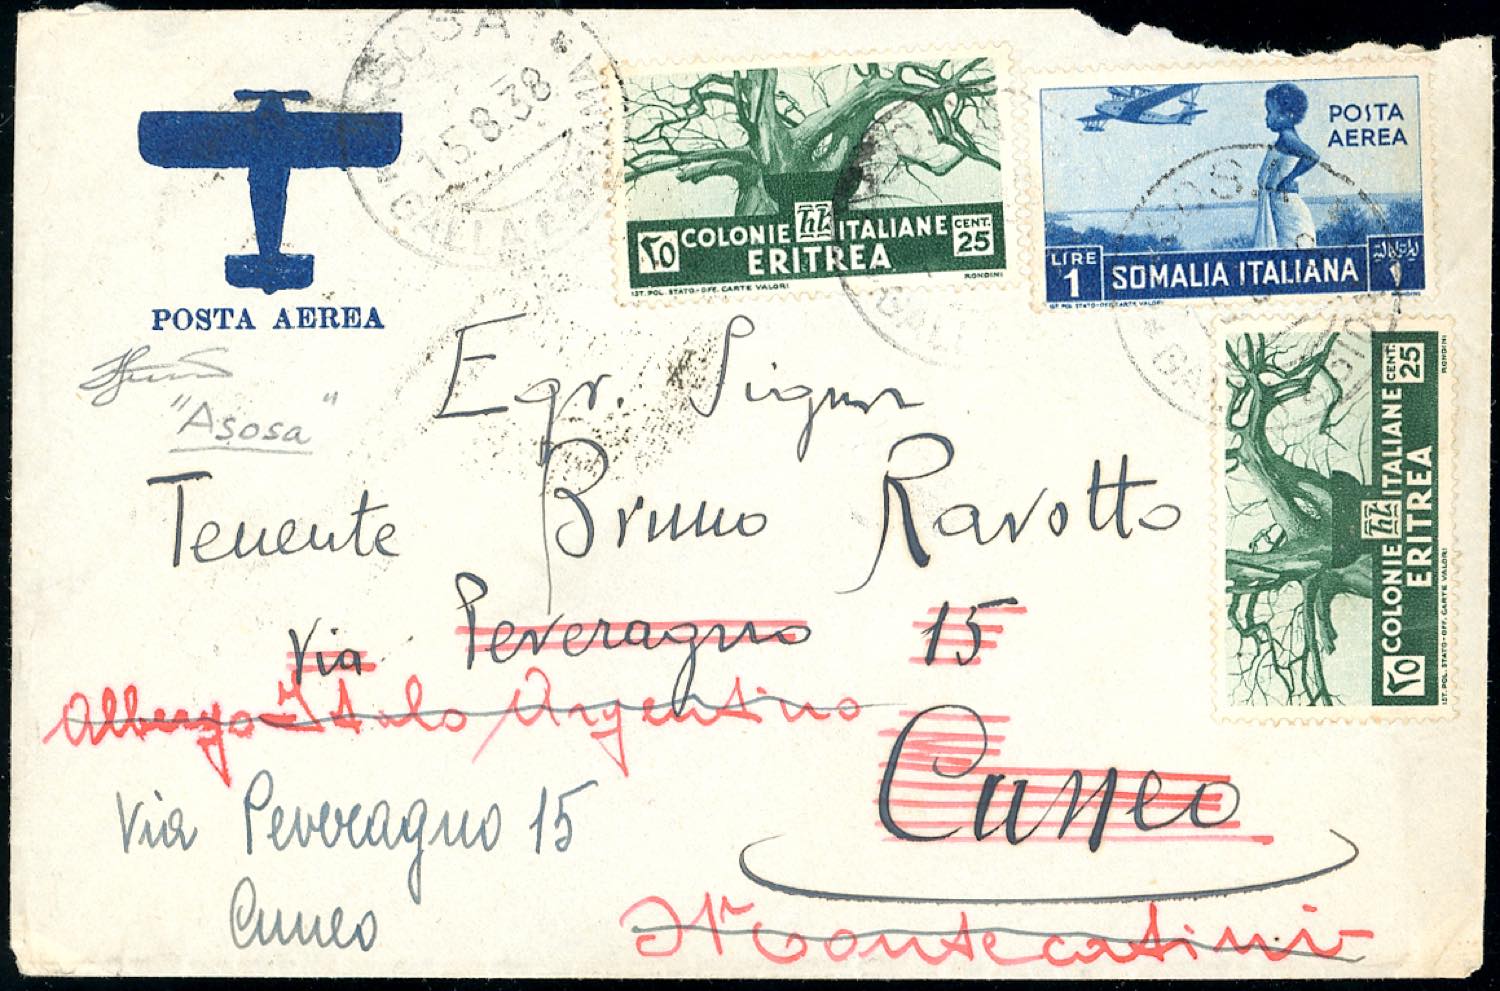 POSTA AEREA
ASOSA
15.8.38
GALLA e SIDAMA
COLONIE ITALIANE
ERITREA
CENT. 25
٢٥
IST. POL. STATO-OFF. CARTE VALORI
RONDINI
POSTA
AEREA
LIRE
1
SOMALIA ITALIANA
١
IST. POL. STATO-OFF. CARTE VALORI
RONDINI
COLONIE ITALIANE
ERITREA
CENT. 25
٢٥
IST. POL. STATO-OFF. CARTE VALORI
RONDINI
"Asosa"
Egr. Signor
Tenente Bruno Ravotto
Via Peveragno 15
Albergo Italo Argentino
Cuneo
Via Peveragno 15
Cuneo
Montecatini